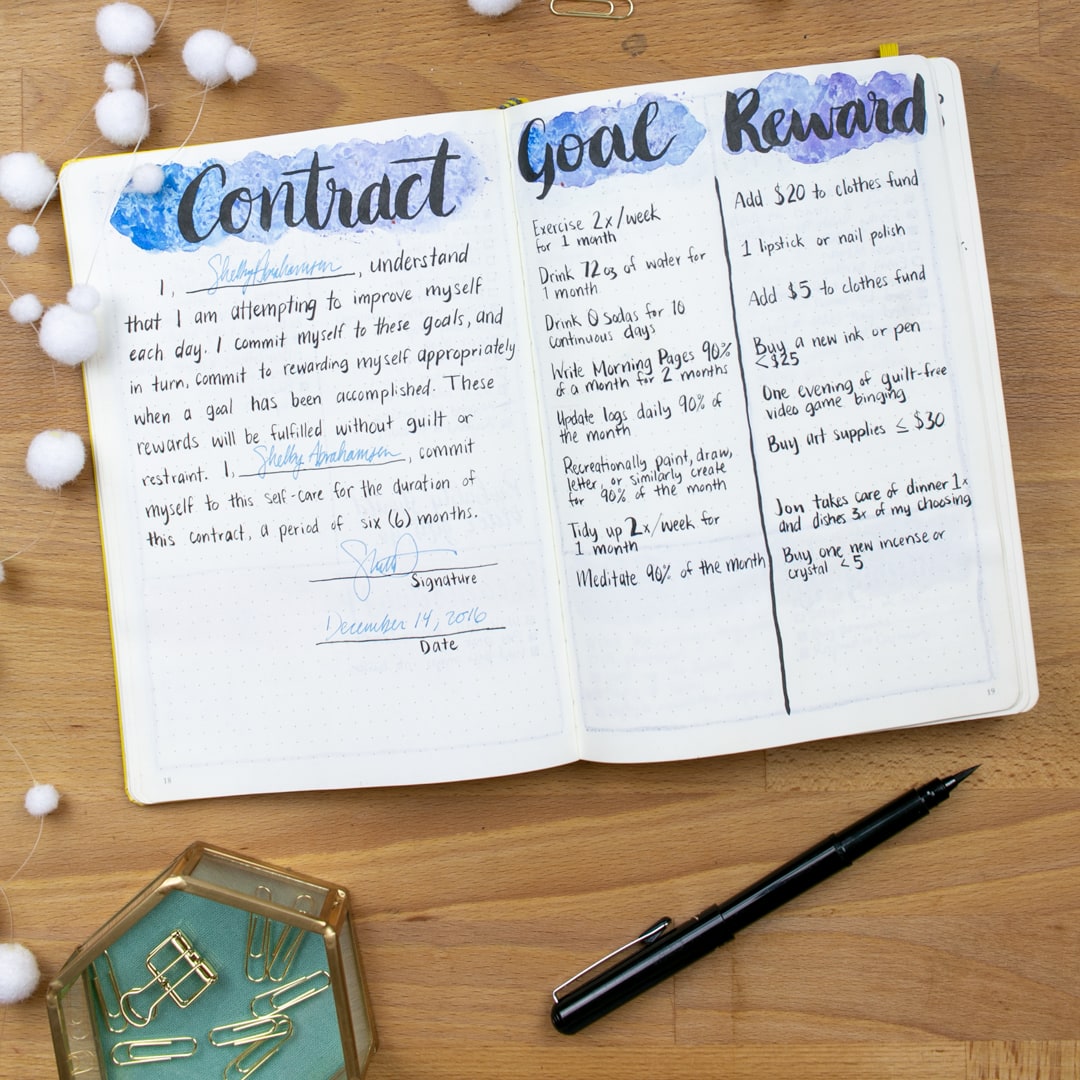 Contract
I, Shelby Abrahamsen, understand
that I am attempting to improve myself
each day. I commit myself to these goals, and
in turn, commit to rewarding myself appropriately
when a goal has been accomplished. These
rewards will be fulfilled without guilt or
restraint. I, Shelby Abrahamsen, commit
myself to this self-care for the duration of
this contract, a period of six (6) months.
Signature
December 14, 2016
Date
18
Goal
Exercise 2x/week
for 1 month
Drink 72 oz of water for
1 month
Drink 0 sodas for 10
continuous days
Write Morning Pages 90%
of a month for 2 months
Update logs daily 90% of
the month
Recreationally paint, draw,
letter, or similarly create
for 90% of the month
Tidy up 2x/week for
1 month
Meditate 90% of the month
Reward
Add $20 to clothes fund
1 lipstick or nail polish
Add $5 to clothes fund
Buy a new ink or pen
<$25
One evening of guilt-free
video game binging
Buy art supplies ≤ $30
Jon takes care of dinner 1x
and dishes 3x of my choosing
Buy one new incense or
crystal <5
19